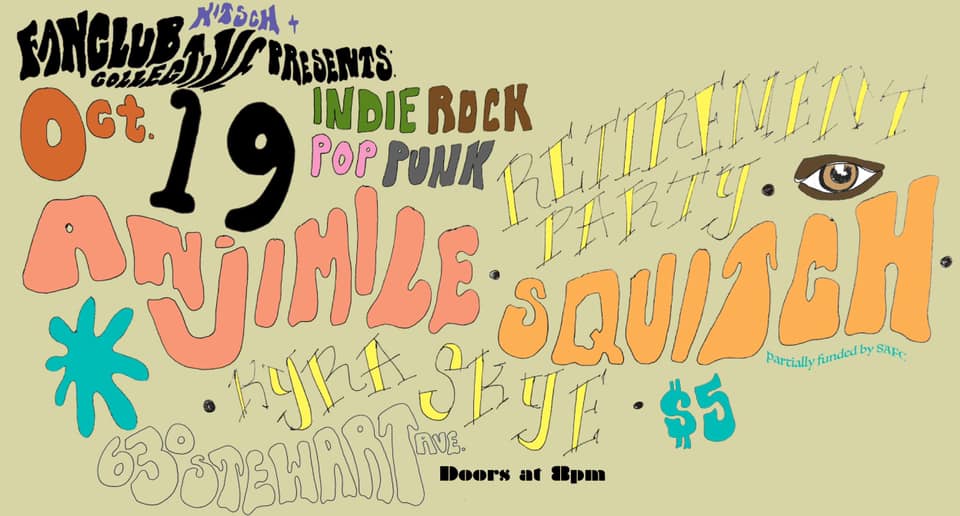 NITSCH +
FANCLUB
COLLECTIVE PRESENTS:
Oct. 19
INDIE ROCK
POP PUNK
RETIREMENT
PARTY
ANJIMILE
SQUITCH
partially funded by SAFC.
KYRA SKYE
$5
630 STEWART AVE.
Doors at 8pm